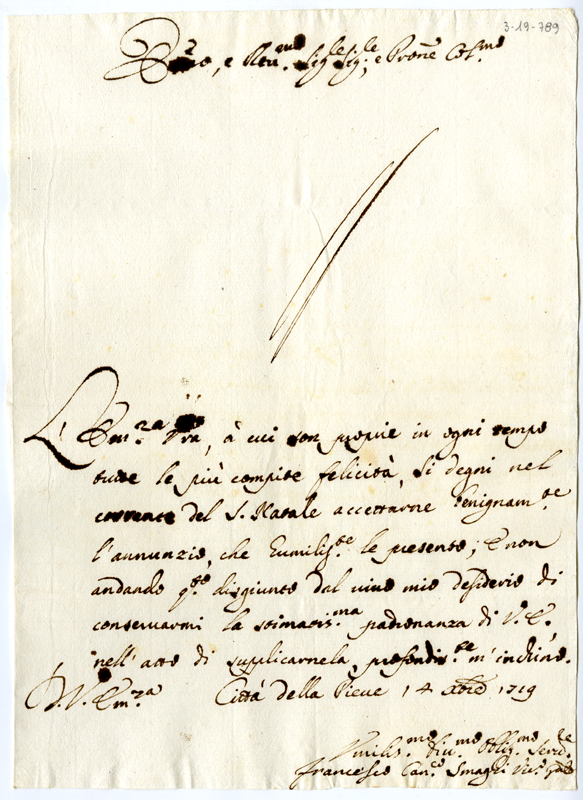 3-19-789
Em.º, e Reu.mo Sig.le Sig.le, e Prone Col.mo
L'Em.za Vra, à cui son proprie in ogni tempo
tutte le più compite felicità, si degni nel
corrente del S. Natale accettarne benignam.te
l'annunzio, che humilis.te le presento; E non
andando q.to disgiunto dal viuo mio desiderio di
conseruarmi la stimatis.ma padronanza di V. E.
nell' atto di supplicarnela, profondis.te m'inchino.
D. V. Em.za Città della Pieue 14 Xbre 1719
Vmilis.mo Diu.mo Obblig.mo Seru.re
Francesco Can.co Smaghi Vic.